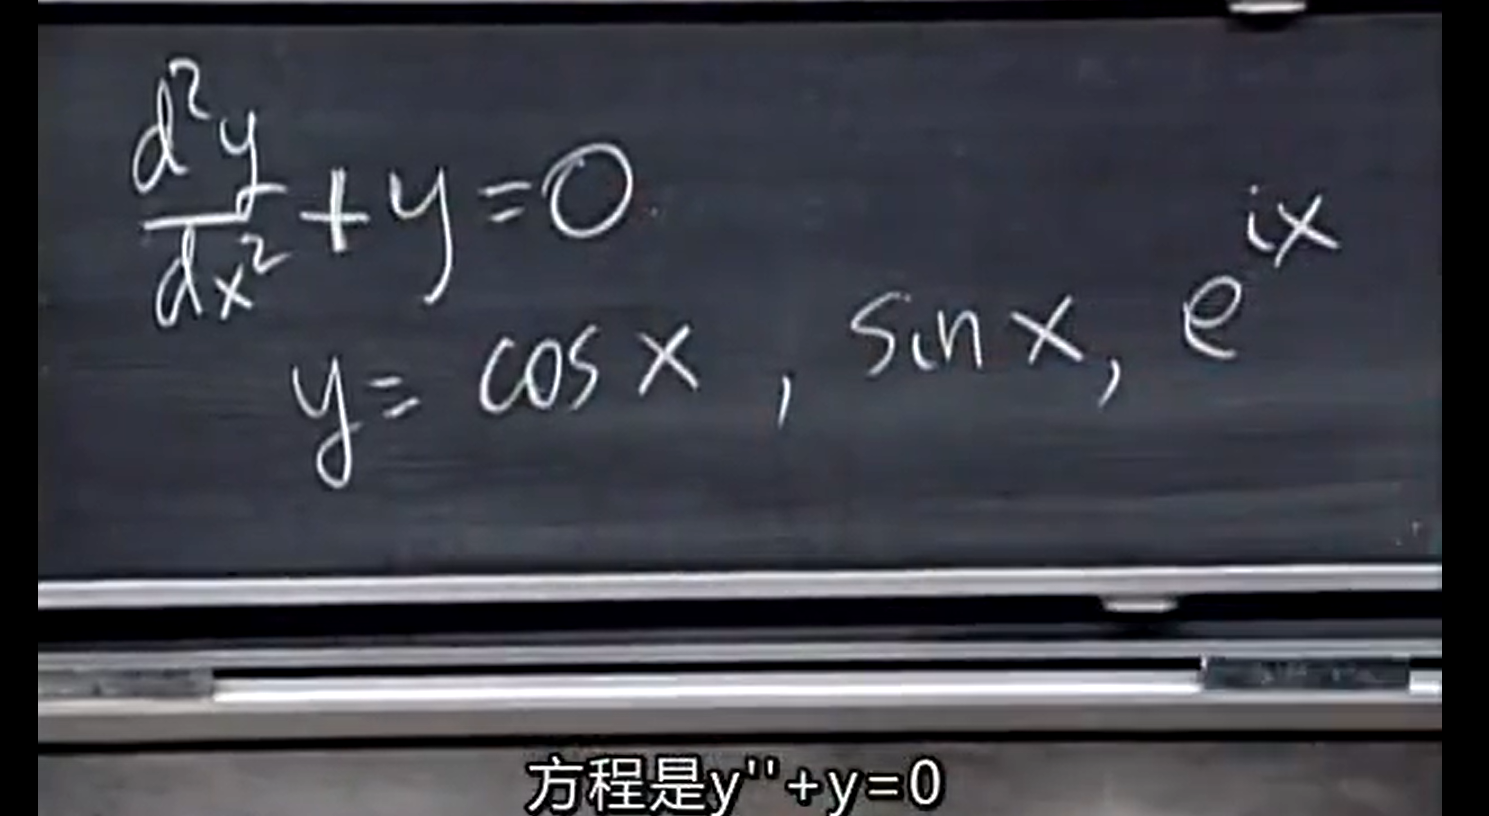 d²y/dx² + y = 0
y = cos x , sin x, e^{ix}
方程是y''+y=0